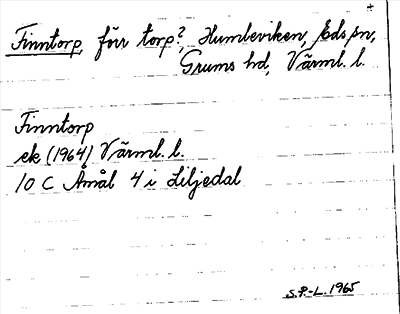 Finntorp, förr torp? Humleviken, Eds sn,
Grums hd, Värml. l.
Finntorp
ek (1964) Värml. l.
10 C Åmål 4 i Liljedal
S.P.-L. 1965